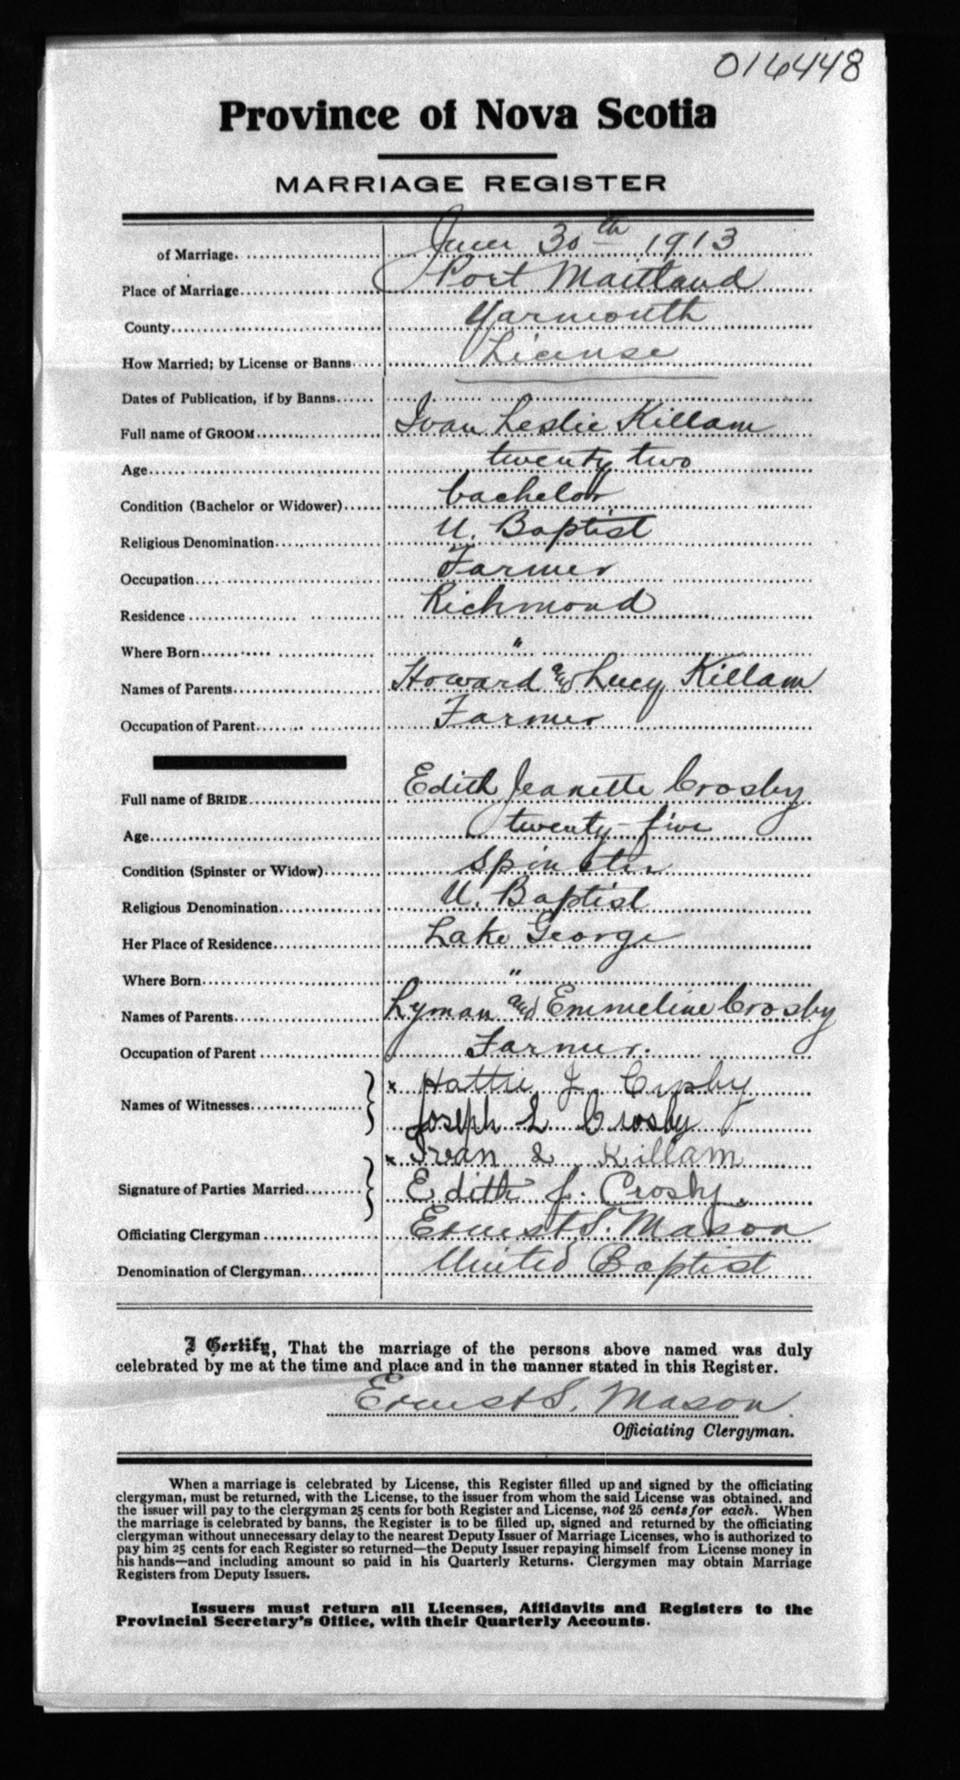 016448
Province of Nova Scotia
MARRIAGE REGISTER
of Marriage. June 30th 1913
Place of Marriage. Port Maitland
County. Yarmouth
How Married; by License or Banns. License
Dates of Publication, if by Banns.
Full name of GROOM. Ivan Leslie Killam
Age. twenty two
Condition (Bachelor or Widower). bachelor
Religious Denomination. U. Baptist
Occupation. Farmer
Residence Richmond
Where Born. "
Names of Parents. Howard and Lucy Killam
Occupation of Parent. Farmer
Full name of BRIDE. Edith Jeanette Crosby
Age. twenty-five
Condition (Spinster or Widow). Spinster
Religious Denomination. U. Baptist
Her Place of Residence. Lake George
Where Born. "
Names of Parents. Lyman and Emmeline Crosby
Occupation of Parent Farmer.
x Hattie J. Crosby
Names of Witnesses. Joseph L Crosby
x Ivan L Killam
Signature of Parties Married. Edith J. Crosby.
Officiating Clergyman Ernest S. Mason
Denomination of Clergyman. United Baptist
I Certify, That the marriage of the persons above named was duly
celebrated by me at the time and place and in the manner stated in this Register.
Ernest S. Mason.
Officiating Clergyman.
When a marriage is celebrated by License, this Register filled up and signed by the officiating
clergyman, must be returned, with the License, to the issuer from whom the said License was obtained, and
the issuer will pay to the clergyman 25 cents for both Register and License, not 25 cents for each. When
the marriage is celebrated by banns, the Register is to be filled up, signed and returned by the officiating
clergyman without unnecessary delay to the nearest Deputy Issuer of Marriage Licenses, who is authorized to
pay him 25 cents for each Register so returned—the Deputy Issuer repaying himself from License money in
his hands—and including amount so paid in his Quarterly Returns. Clergymen may obtain Marriage
Registers from Deputy Issuers.
Issuers must return all Licenses, Affidavits and Registers to the
Provincial Secretary's Office, with their Quarterly Accounts.